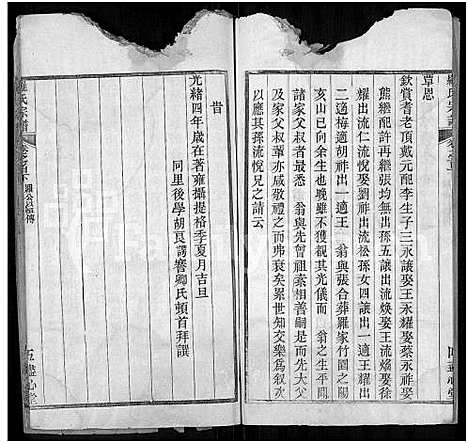 覃恩
欽賞耆老頂戴元配李生子三永讓娶王永耀娶蔡永祚娶
熊繼配許再繼張均無出孫五讓出流煥娶王流悅娶徐
耀出流仁流悅娶劉祚出流松孫女四讓出一適王耀出
二適梅適胡祚出一適王　翁與張合葬羅家竹園之陽
亥山已向余生也晚雖不獲親其光儀而　翁之生平聞
諸家父叔者最悉　翁與先曾祖索相善嗣是而于先祖
及家父叔輩亦咸敬禮之而弗衰矣累世如故交樂為敘次
以應其孫流悅兄之請云
昔
光緒四年歲在著雍攝提格季夏月吉旦
阿里後學胡良諤響卿氏頓首拜譔
羅氏宗譜